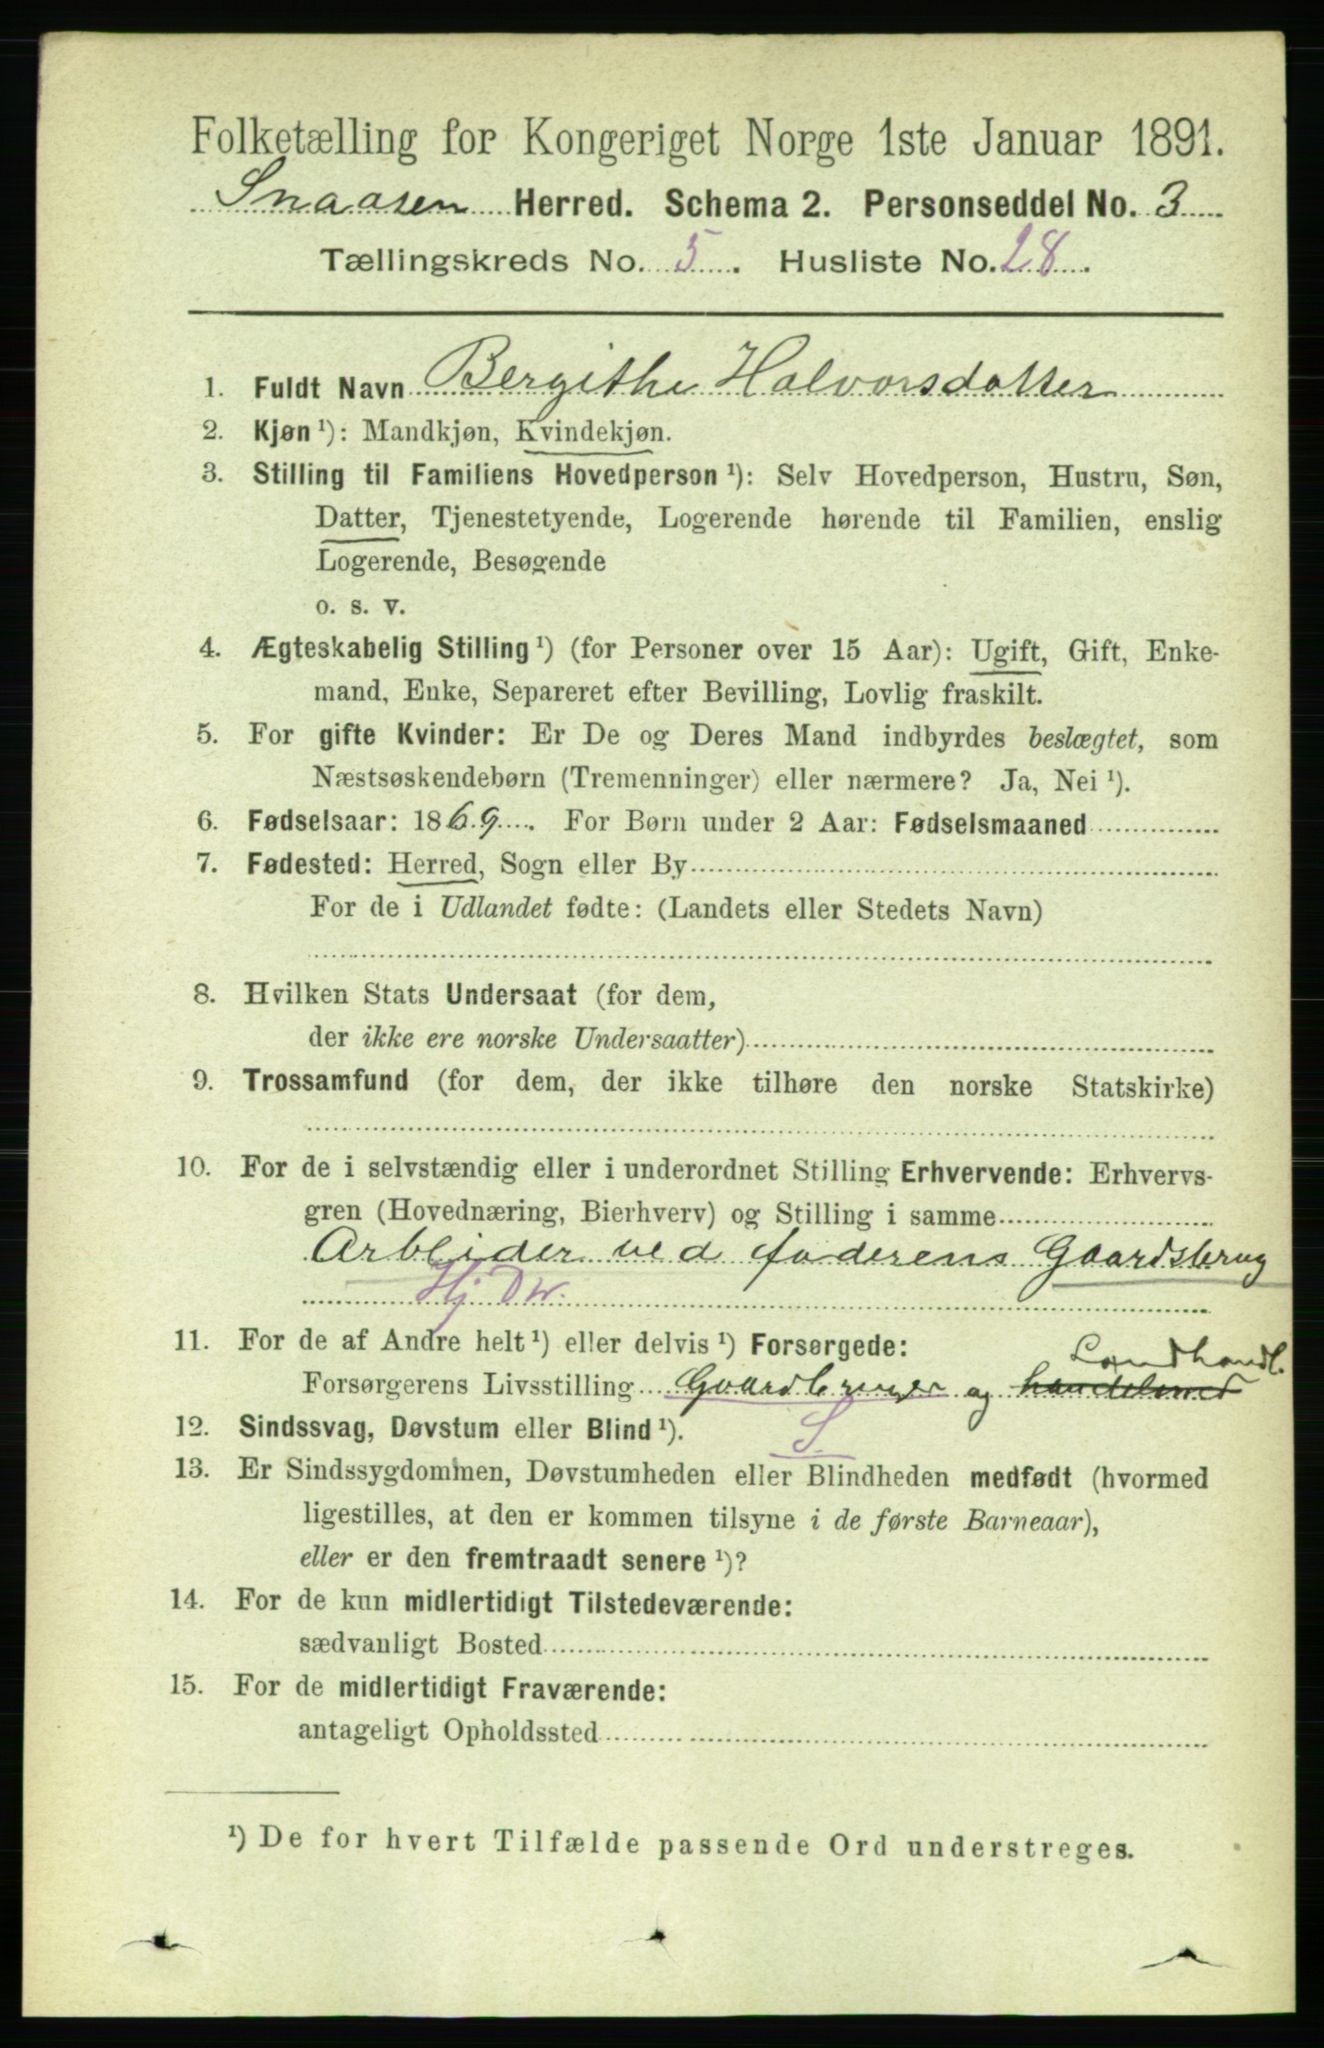 Folketælling for Kongeriget Norge 1ste Januar 1891.
Snaasen Herred. Schema 2. Personseddel No. 3
Tællingskreds No. 5. Husliste No. 28.
1. Fuldt Navn Bergithe Halvorsdatter
2. Kjøn ¹): Mandkjøn, Kvindekjøn.
3. Stilling til Familiens Hovedperson ¹): Selv Hovedperson, Hustru, Søn,
Datter, Tjenestetyende, Logerende hørende til Familien, enslig
Logerende, Besøgende
o. s. v.
4. Ægteskabelig Stilling ¹) (for Personer over 15 Aar): Ugift, Gift, Enke-
mand, Enke, Separeret efter Bevilling, Lovlig fraskilt.
5. For gifte Kvinder: Er De og Deres Mand indbyrdes beslægtet, som
Næstsøskendebørn (Tremenninger) eller nærmere? Ja, Nei ¹).
6. Fødselsaar: 1869. For Børn under 2 Aar: Fødselsmaaned
7. Fødested: Herred, Sogn eller By
For de i Udlandet fødte: (Landets eller Stedets Navn)
8. Hvilken Stats Undersaat (for dem,
der ikke ere norske Undersaatter)
9. Trossamfund (for dem, der ikke tilhøre den norske Statskirke)
10. For de i selvstændig eller i underordnet Stilling Erhvervende: Erhvervs-
gren (Hovednæring, Bierhverv) og Stilling i samme
Arbeider ved faderens Gaardsbrug
Hj Dw.
11. For de af Andre helt ¹) eller delvis ¹) Forsørgede:
Landhandl.
Forsørgerens Livsstilling Gaardbruger og
S
12. Sindssvag, Døvstum eller Blind ¹).
13. Er Sindssygdommen, Døvstumheden eller Blindheden medfødt (hvormed
ligestilles, at den er kommen tilsyne i de første Barneaar),
eller er den fremtraadt senere ¹)?
14. For de kun midlertidigt Tilstedeværende:
sædvanligt Bosted
15. For de midlertidigt Fraværende:
antageligt Opholdssted
¹) De for hvert Tilfælde passende Ord understreges.